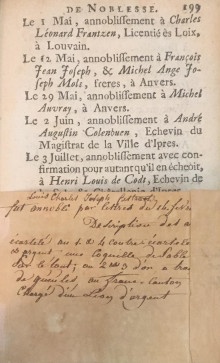 DE NOBLESSE. 199
Le 1 Mai, annoblissement à Charles
Léonard Frantzen, Licentié ès Loix,
à Louvain.
Le 12 Mai, annoblissement à François
Jean Joseph, & Michel Ange Jo-
seph Mols, freres, à Anvers.
Le 29 Mai, annoblissement à Michel
Auvray, à Anvers.
Le 2 Juin, annoblissement à André
Augustin Colenbuen, Echevin du
Magistrat de la Ville d'Ipres.
Le 3 Juillet, annoblissement avec con-
firmation pour autant qu'il en échéoit,
à Henri Louis de Colt, Echevin de
Louis Charles Joseph
fut annobli par lettres du
Description des a
écartelé au 1 & 4 contre écartelé
d'argent une coquille de sable
sur le tout; au 2 & 3 d'or a trois
de gueules au franc canton
chargé d'un Lion d'argent